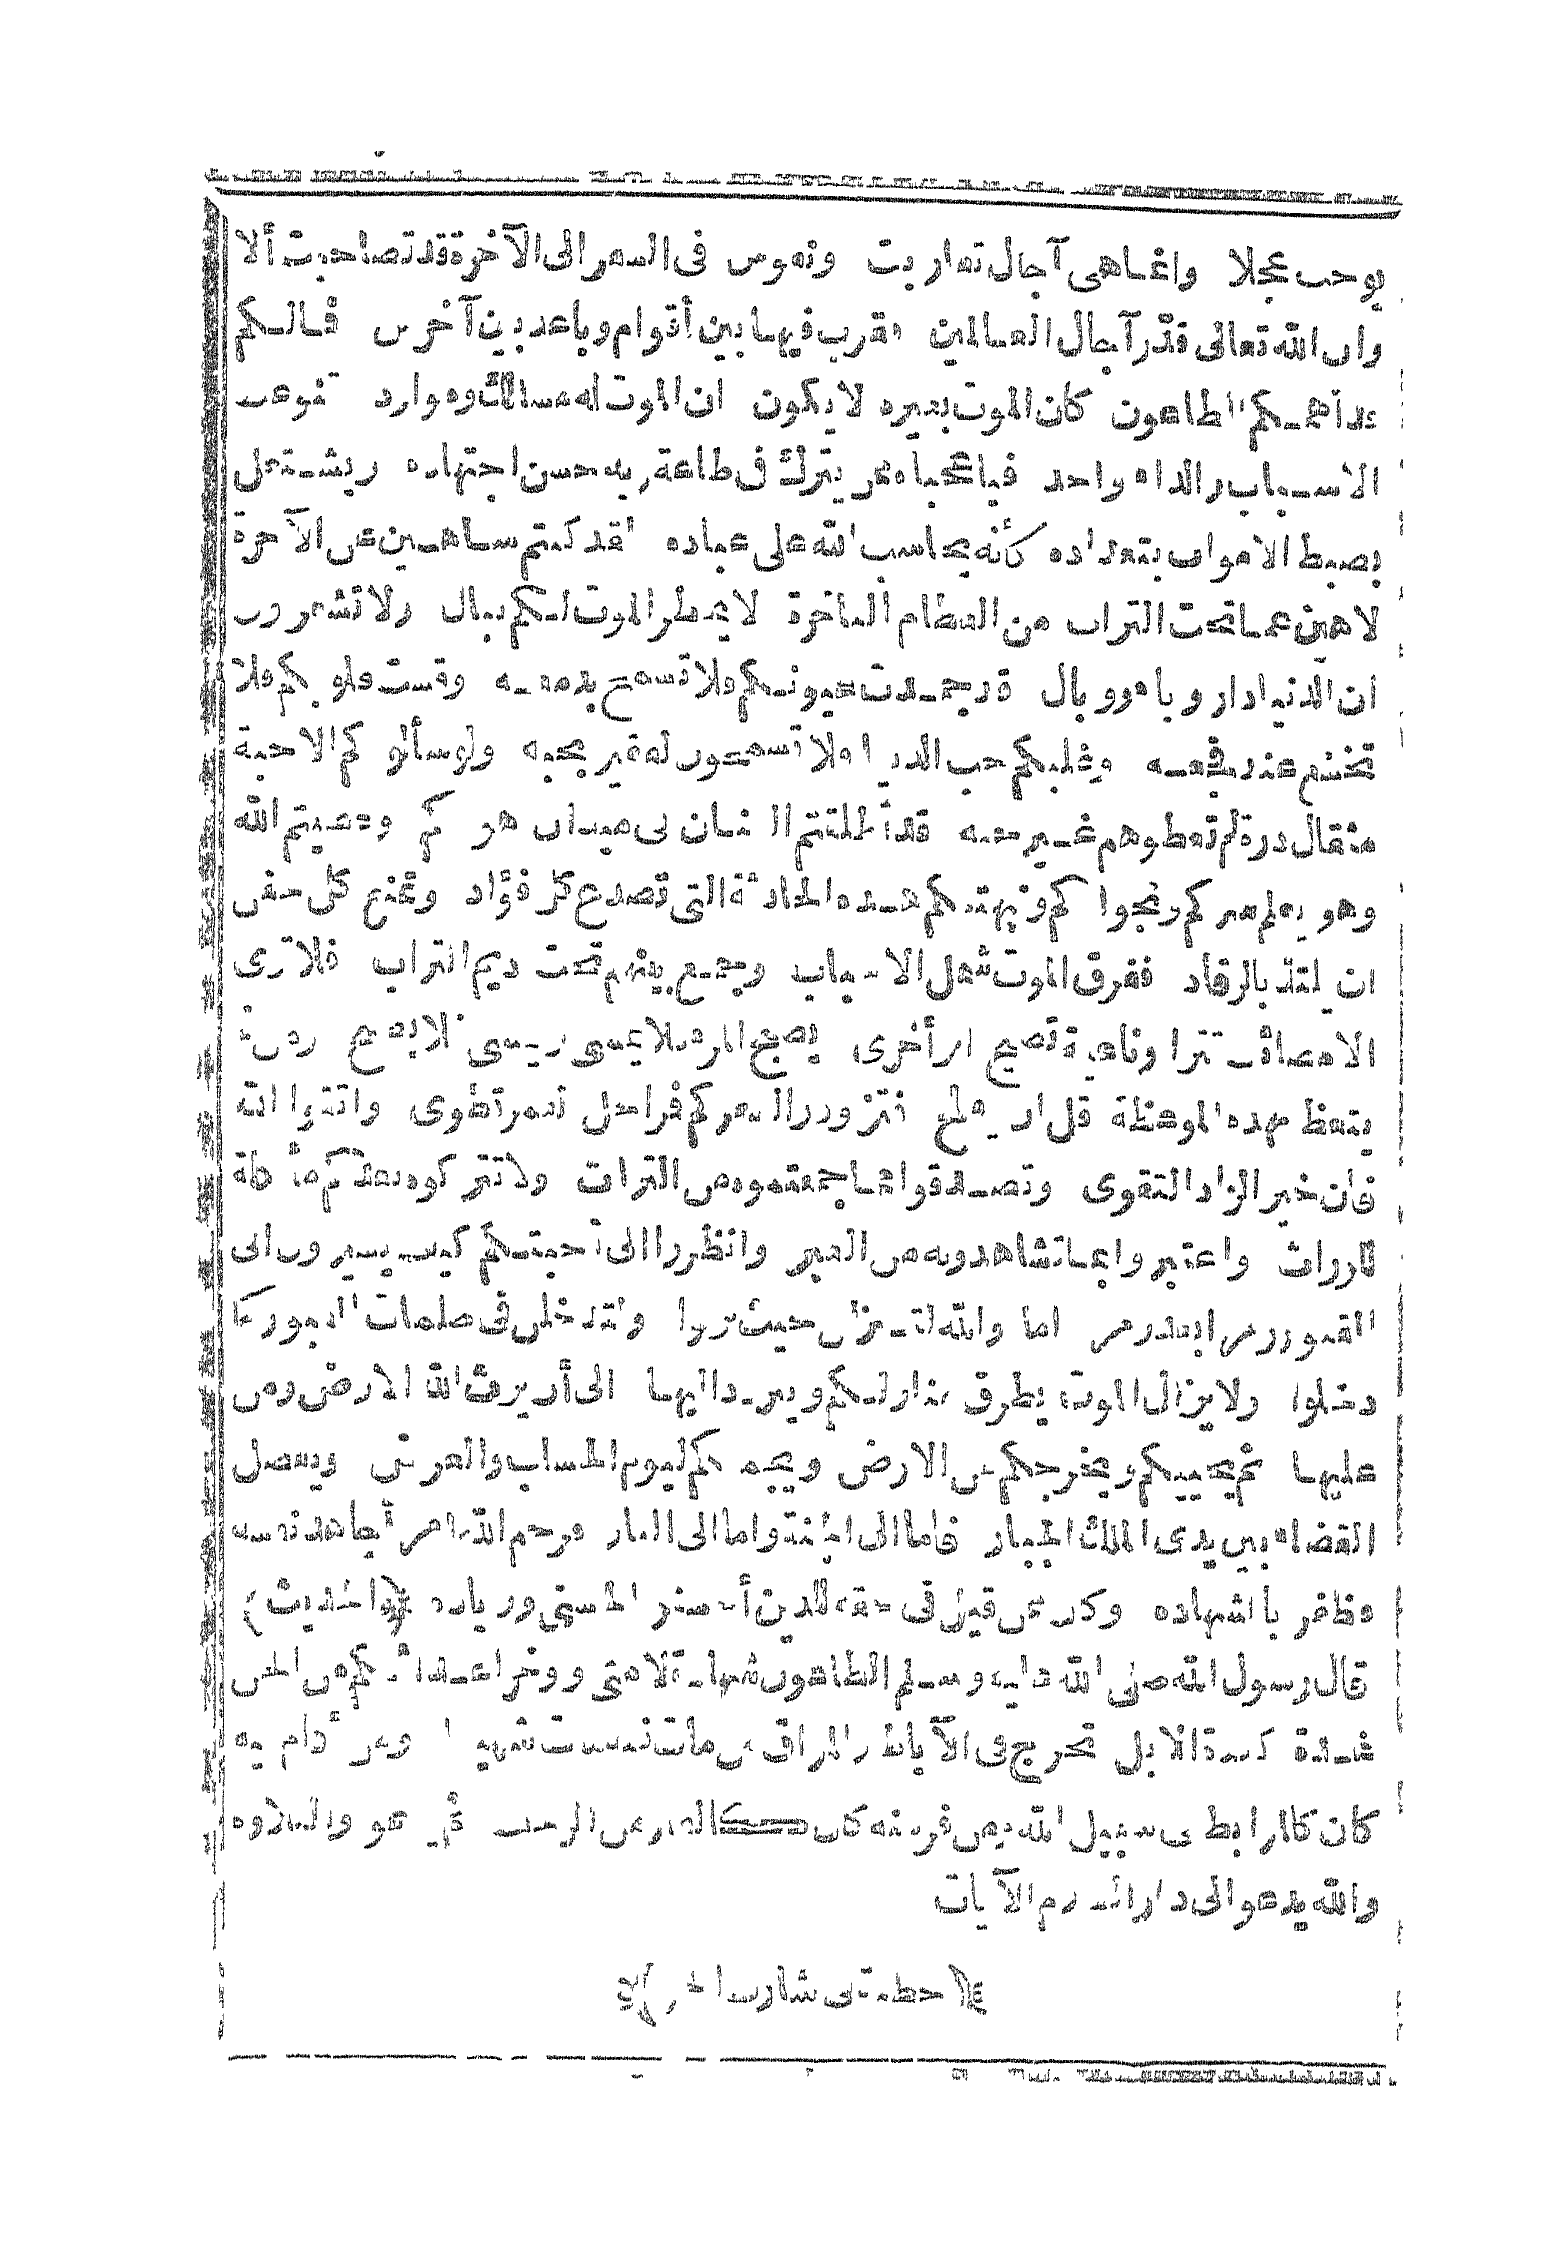 يوجب عجلا وانما هى آجال تقاربت ونفوس فى السفر الى الآخرة قد تصاحبت ألا
وان الله تعالى قدر آجال العالمين فقرب فيها بين أقوام وباعد بين آخرين فمالكم
الطاعون كان الموت بغيره لا يكون ان الموت له مسالك وموارد تنوعت
الاسباب والداء واحد فيا عجبا ممن يترك فى طاعة ربه حسن اجتهاده ويشتغل
بضبط الاموات بتعداده كأنه يحاسب الله على عباده لقد كنتم ساهين عن الآخرة
لاهين عما تحت التراب من العظام الناخرة لا يخطر الموت لكم ببال ولا تشعرون
ان الدنيا دار وباء ووبال قد جمدت عيونكم فلا تسمح بدمعه وقست قلوبكم فلا
تخشع عند وغلبكم حب الدنيا فلا تسمحون لفقير بحبه ولو سألوكم الاحبة
مثقال ذرة لم تعطوهم غير حبه قد أطلقتم العنان فى ميدان ونسيتم الله
وهو يعلم سركم ونجواكم هذه الحادثة التى تصدع كل فؤاد وتمنع كل جفن
ان يلتذ بالرقاد ففرق الموت شمل الاحباب وجمع بينهم تحت ديم التراب فلا ترى
الا مصائب تترا وناعية تصيح أخرى يصبح المرء فلا يمسى ويمسى فلا يصبح
يتعظ بهذه الموعظة تزودوا لسفركم فمراحل العمر تطوى واتقوا الله
فان خير الزاد التقوى وتصدقوا مما جمعتموه من التراث ولا تتركوه بعدكم
للوراث واعتبروا بما تشاهدونه من العبر وانظروا الى أحبتكم كيف يسيرون الى
القبور زمرا بعد زمر اما والله لننزلن حيث نزلوا ولندخلن فى ظلمات القبور كما
دخلوا ولا يزال الموت يطرق منازلكم ويتردد اليها الى أن يرث الله الارض ومن
عليها ثم يحييكم ويخرجكم من الارض ويجمعكم ليوم الحساب والعرض ويفصل
القضاء بين يدى الملك الجبار فاما الى الجنة واما الى النار فرحم الله امرأ جاهد نفسه
وظفر بالشهاده وكان ممن قيل فى حقه للذين أحسنوا الحسنى وزياده (الحديث)
قال رسول الله صلى الله عليه وسلم الطاعون شهادة لامتى ووخز اعدائكم من الجن
غدة كغدة الابل تخرج فى الآباط والمراق من مات فيه مات شهيدا ومن أقام فيه
كان كالمرابط فى سبيل الله ومن فر منه كان كالفار من الزحف والتلاوه
والله يدعو الى دار السلام الآيات